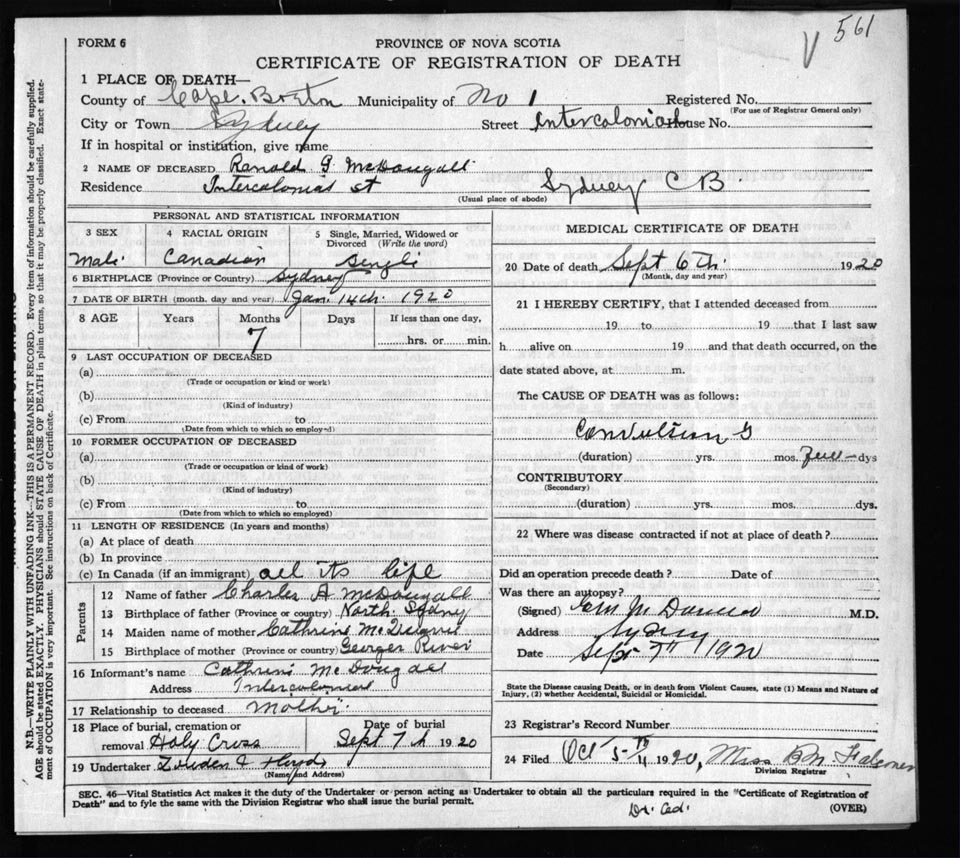 561
FORM 6
PROVINCE OF NOVA SCOTIA
CERTIFICATE OF REGISTRATION OF DEATH
1 PLACE OF DEATH—
County of Cape. Breton Municipality of No 1 Registered No.
(For use of Registrar General only)
City or Town Sydney Street Intercolonial House No.
If in hospital or institution, give name
2 NAME OF DECEASED Ranold G McDougall
Residence Intercolonial st Sydney C B
(Usual place of abode)
PERSONAL AND STATISTICAL INFORMATION
3 SEX 4 RACIAL ORIGIN 5 Single, Married, Widowed or Divorced (Write the word)
Male Canadian Single
6 BIRTHPLACE (Province or Country) Sydney
7 DATE OF BIRTH (month, day and year) Jan. 14th. 1920
8 AGE Years Months Days If less than one day,
7 hrs. or min.
9 LAST OCCUPATION OF DECEASED
(a)
(Trade or occupation or kind or work)
(b)
(Kind of industry)
(c) From to
(Date from which to which so employed)
10 FORMER OCCUPATION OF DECEASED
(a)
(Trade or occupation or kind of work)
(b)
(Kind of industry)
(c) From to
(Date from which to which so employed)
11 LENGTH OF RESIDENCE (In years and months)
(a) At place of death
(b) In province
(c) In Canada (if an immigrant) all its life
Parents
12 Name of father Charles A McDougall
13 Birthplace of father (Province or country) North. Sydney
14 Maiden name of mother Cathrine
15 Birthplace of mother (Province or country) Georges River
16 Informant's name Cathrine McDougall
Address Intercolonial
17 Relationship to deceased Mother
18 Place of burial, cremation or Date of burial
removal Holy Cross Sept 7th 1920
19 Undertaker
(Name and Address)
MEDICAL CERTIFICATE OF DEATH
20 Date of death Sept 6th. 1920
(Month, day and year)
21 I HEREBY CERTIFY, that I attended deceased from
19 to 19 that I last saw
h alive on 19 and that death occurred, on the
date stated above, at m.
The CAUSE OF DEATH was as follows:
Convulsions
(duration) yrs. mos. dys
CONTRIBUTORY
(Secondary)
(duration) yrs. mos. dys.
22 Where was disease contracted if not at place of death?
Did an operation precede death? Date of
Was there an autopsy?
(Signed) M.D.
Address Sydney
Date Sept 7th 1920
State the Disease causing Death, or in death from Violent Causes, state (1) Means and Nature of
Injury, (2) whether Accidental, Suicidal or Homicidal.
23 Registrar's Record Number
24 Filed Oct 5th 1920, Miss
Division Registrar
SEC. 46—Vital Statistics Act makes it duty of the Undertaker or person acting as Undertaker to obtain all the particulars required in the "Certificate of Registration of
Death" and to fyle the same with the Division Registrar who shall issue the burial permit. (OVER)
N.B.—WRITE PLAINLY WITH UNFADING INK—THIS IS A PERMANENT RECORD. Every item of information should be carefully supplied.
AGE should be stated EXACTLY. PHYSICIANS should STATE CAUSE OF DEATH in plain terms, so that it may be properly classified. Exact statement of OCCUPATION is very important. See instructions on back of Certificate.